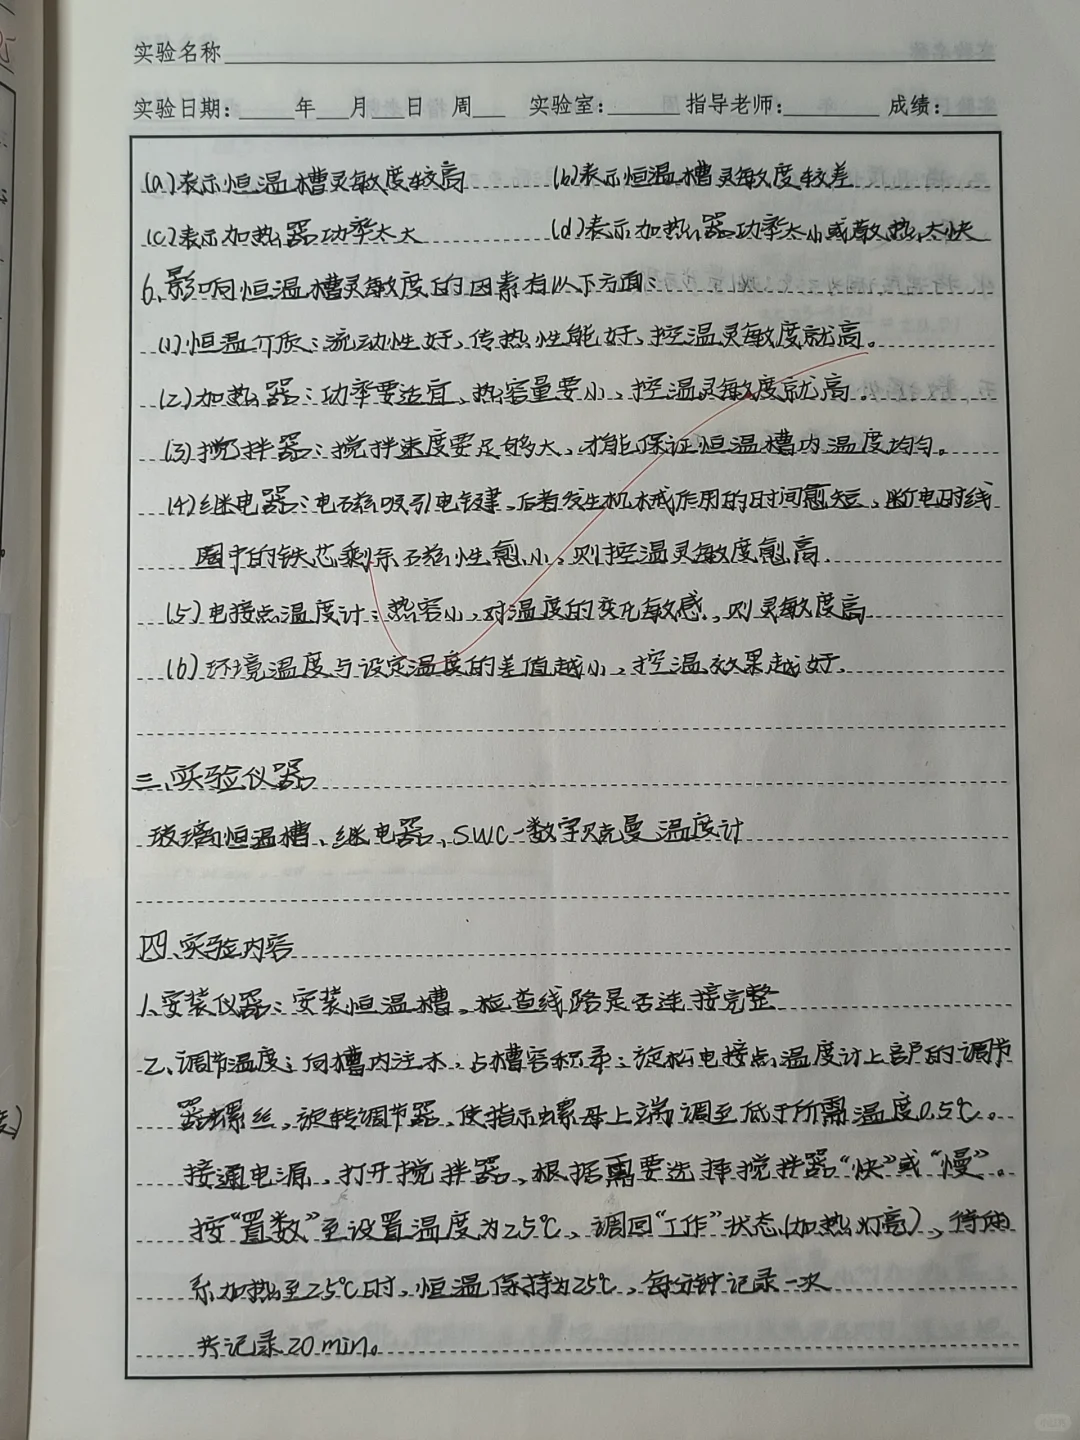 实验名称
实验日期: 年 月 日 周 实验室: 指导老师: 成绩:
(a)表示恒温槽灵敏度较高 (b)表示恒温槽灵敏度较差
(c)表示加热器功率太大 (d)表示加热器功率太小或散热太快
6、影响恒温槽灵敏度的因素有以下方面:
(1)恒温介质:流动性好,传热性能好,控温灵敏度就高。
(2)加热器:功率要适宜,热容量要小,控温灵敏度就高。
(3)搅拌器:搅拌速度要足够大,才能保证恒温槽内温度均匀。
(4)继电器:电磁吸引电键,后者发生机械作用的时间愈短,断电时线
圈中的铁芯剩余磁性愈小,则控温灵敏度愈高.
(5)电接点温度计:热容小,对温度的变化敏感,则灵敏度高
(6)环境温度与设定温度的差值越小,控温效果越好.
三、实验仪器
玻璃恒温槽、继电器、SWC-数字贝克曼温度计
四、实验内容
1、安装仪器:安装恒温槽,检查线路是否连接完整
2、调节温度:向槽内注水,占槽容积;旋松电接点温度计上部的调节
器螺丝,旋转调节器,使指示螺母上端调至低于所需温度0.5℃。
接通电源,打开搅拌器,根据需要选择搅拌器“快”或“慢”。
按“置数”至设置温度为25℃,调回“工作”状态(加热灯亮),待
系加热至25℃时,恒温保持为25℃,每分钟记录一次
共记录20min。